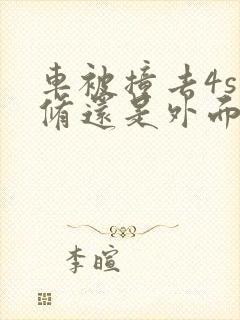 車被撞去4s
脩還是外面
李暄